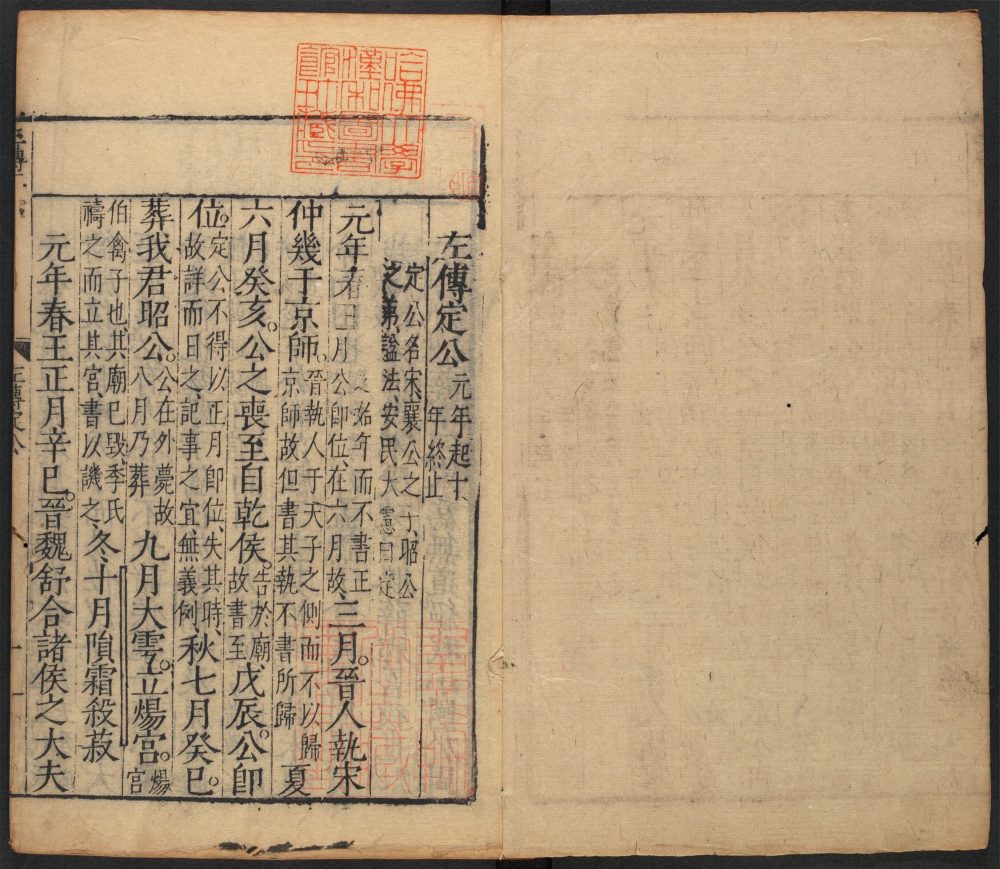 哈佛大學漢和圖書館珍藏印
左傳定公 元年起十
年終止
定公名宋、襄公之子、昭公
之弟、謚法、安民大慮曰定
元年春王 公之始年而不書正
月公卽位、在六月故、三月。晉人執宋
仲幾于京師。晉執人于天子之側而不以歸
京師故但書其執不書所歸 夏
六月癸亥。公之喪至自乾侯。告於廟、
故書至 戊辰。公卽
位。定公不得以正月卽位、失其時、
故詳而日之、記事之宜、無義例、秋七月癸巳。
葬我君昭公。公在外薨故
八月乃葬 九月大雩。立煬宮。煬
宮
伯禽子也、其廟已毀、季氏
禱之而立其宮、書以譏之、冬、十月隕霜殺菽
元年春王正月辛巳。晉魏舒合諸侯之大夫
左傳定公